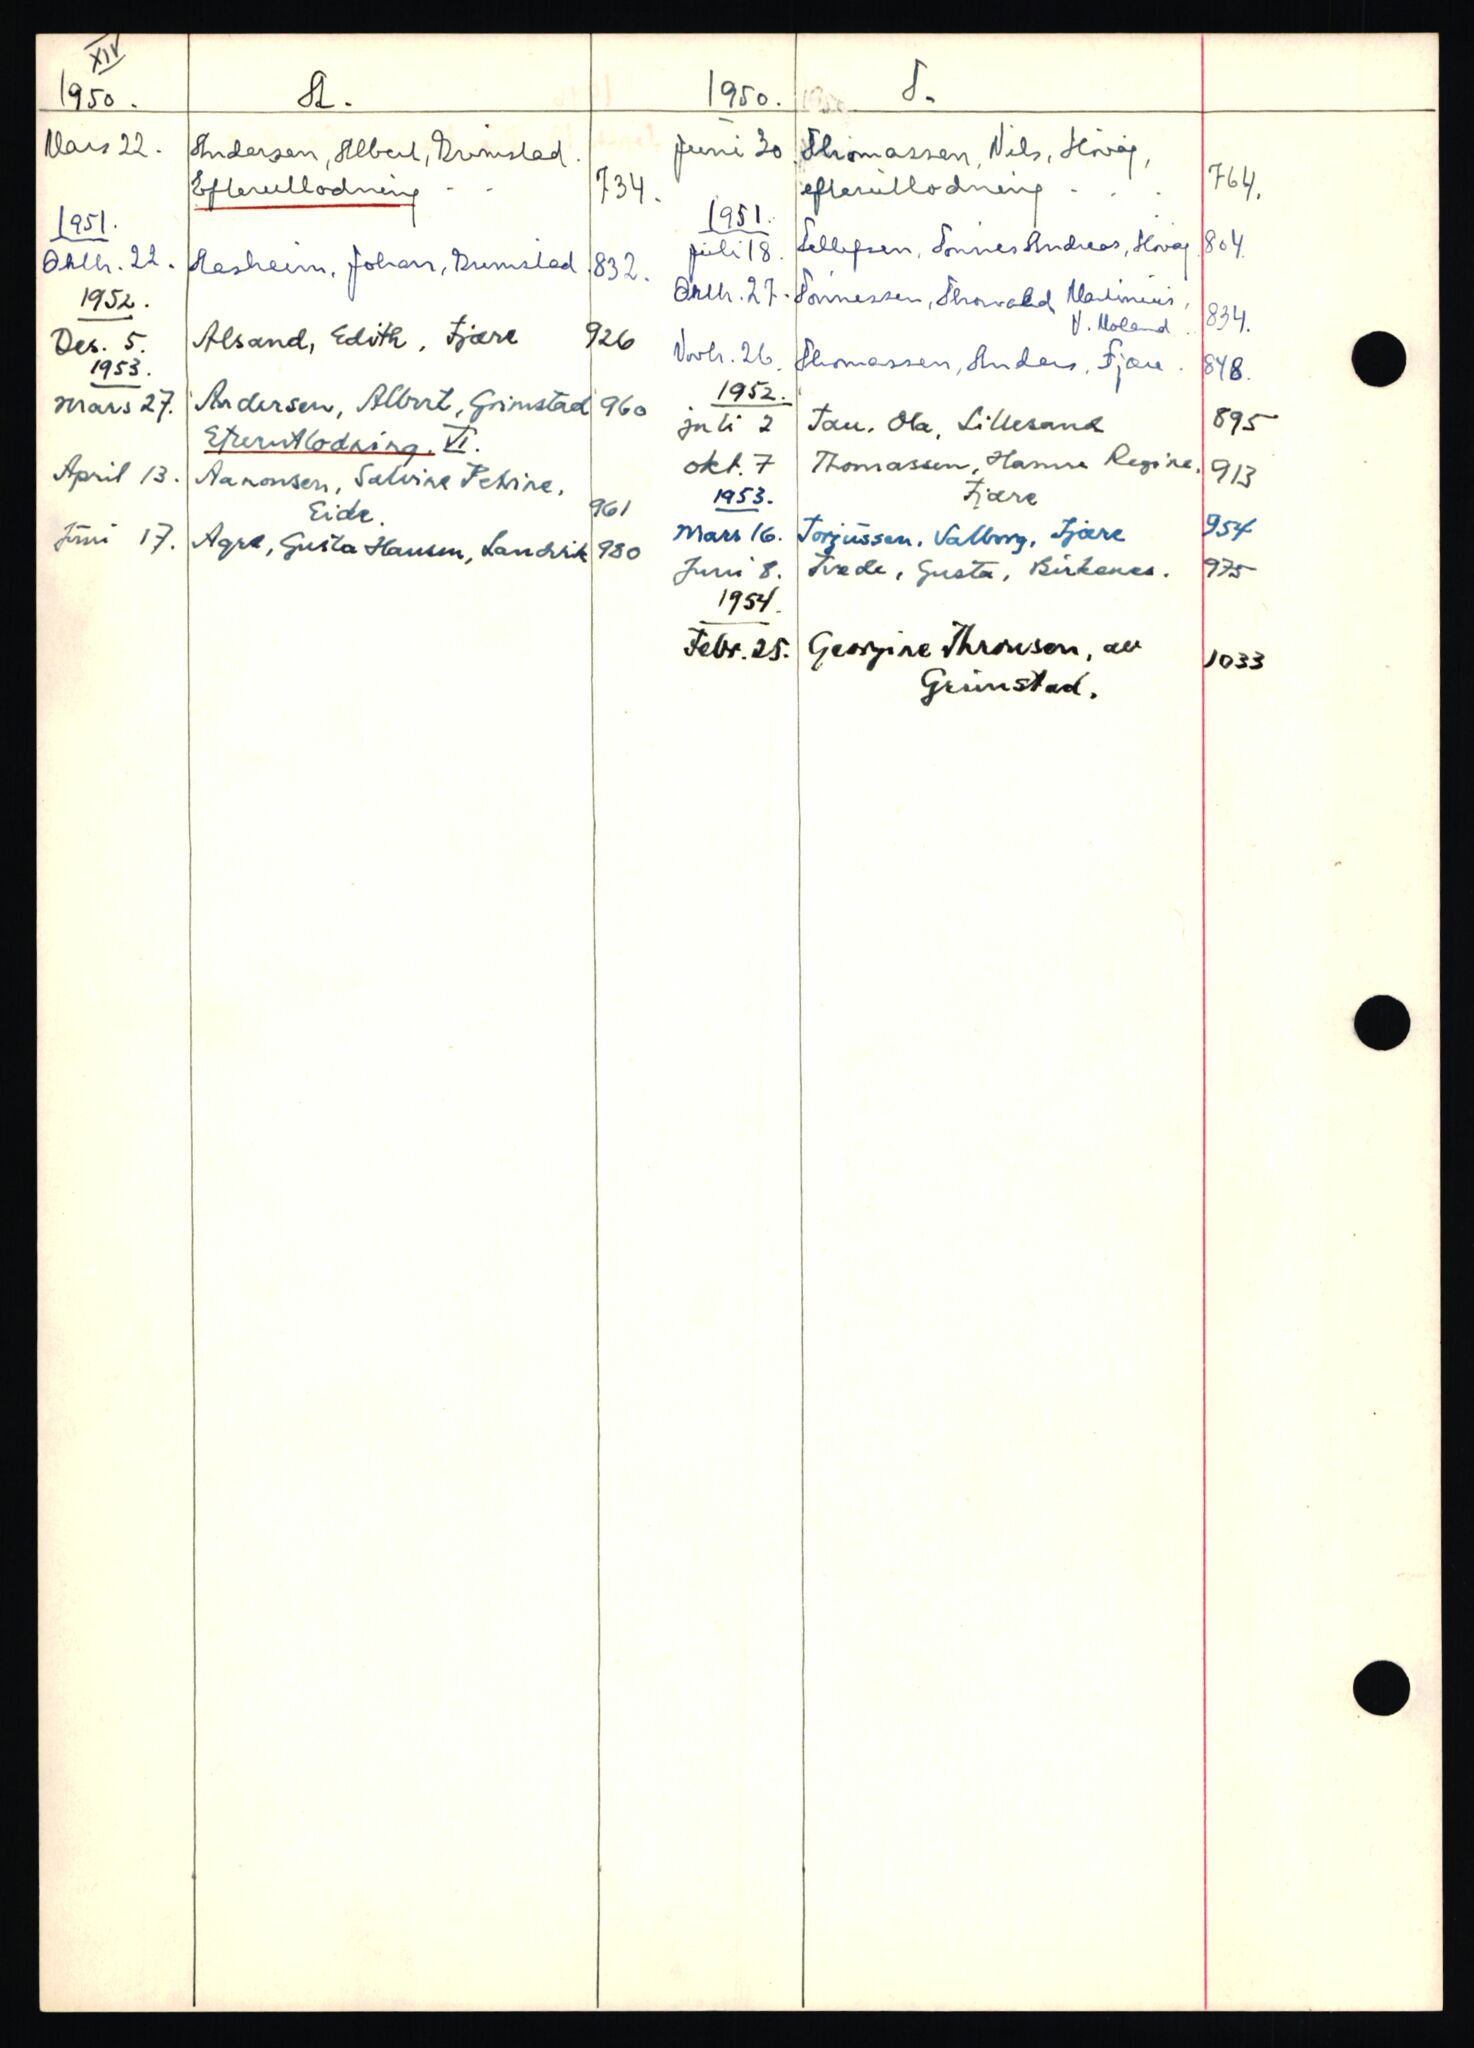 XIV
1950. A.
Mars 22. Andersen, Albert, Grimstad.
Efterutlodning - - 734.
1951.
Oktb. 22. Aasheim, Johan, Grimstad 832.
1952.
Des. 5. Alsand, Edith, Fjære 926
1953.
Mars 27. Andersen, Albert, Grimstad 960
Eterutlodning. VI.
April 13. Aanonsen, Salvine Petrine,
Eide. 961
Juni 17. Agre, Gusta Hansen, Landvik 980
1950. T.
Juni 30 Thomassen, Nils, Høvåg,
efterutlodning - . . 764.
1951.
juli 18. Tellefsen, Tønnes Andreas, Høvåg. 804.
Oktb. 27. Tønnessen, Thorvald Martinius,
V. Moland. 834.
Novb. 26. Thomassen, Anders, Fjære. 848.
1952.
juli 2 Tau, Ola, Lillesand 895
okt. 7 Thomassen, Hanne Regine, 913
Fjære
1953.
Mars 16. Torjussen, Valborg, Fjære 954
Juni 8. Tvede, Gusta, Birkenes. 975
1954.
Febr. 25. Georgine Thronsen, av 1033
Grimstad.